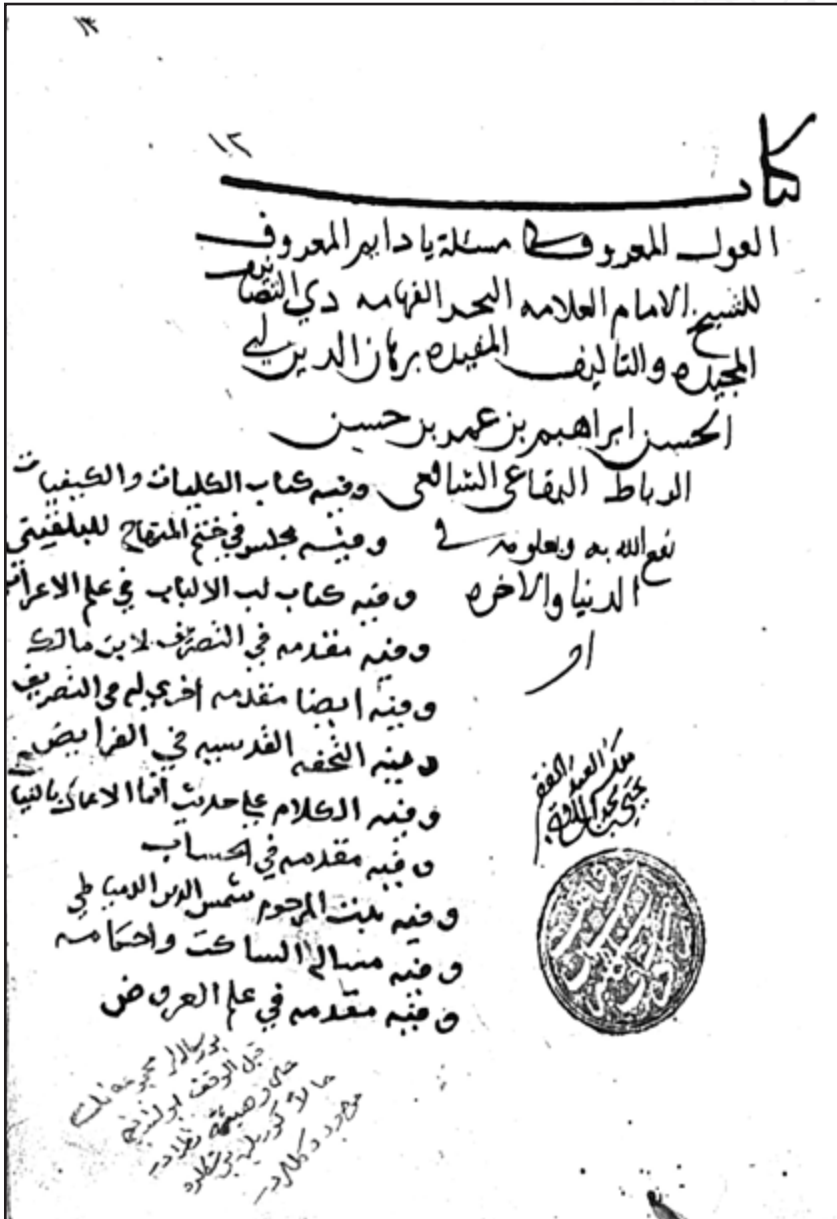 ١٢
كتاب
القول المعروف في مسئلة يا دايم المعروف
للشيخ الامام العلامه البحر الفهامه ذي التصانيف
المجيده والتاليف المفيده برهان الدين ابي
الحسن ابراهيم بن عمر بن حسن
الرباط البقاعي الشافعي
نفع الله به وبعلومه في
الدنيا والاخره
وفيه كتاب الكليات والكيفيات
وفيه مجلس في ختم المنهاج للبلقيني
وفيه كتاب لب الالباب في علم الاعراب
وفيه مقدمه في التصريف لابن مالك
وفيه ايضا مقدمه اخري له في التصريف
وفيه التحفه القدسيه في الفرايض
وفيه الكلام علي حديث انما الاعمال بالنيات
وفيه مقدمه في الحساب
وفيه ثبت المرحوم شمس الدين الدمياطي
وفيه مسالة الساكت واحكامه
وفيه مقدمه في علم العروض
ملكه العبد الفقير